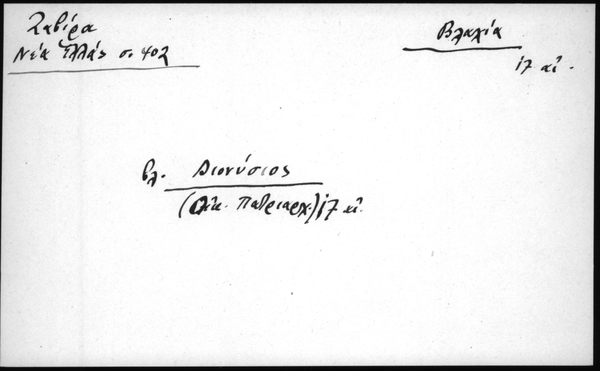 Ζαβίρα
Νέα Ἑλλάς σ. 402
Βλαχία
17 αἰ.
βλ. Διονύσιος
(Οἰκ. Πατριαρχ.) 17 αἰ.